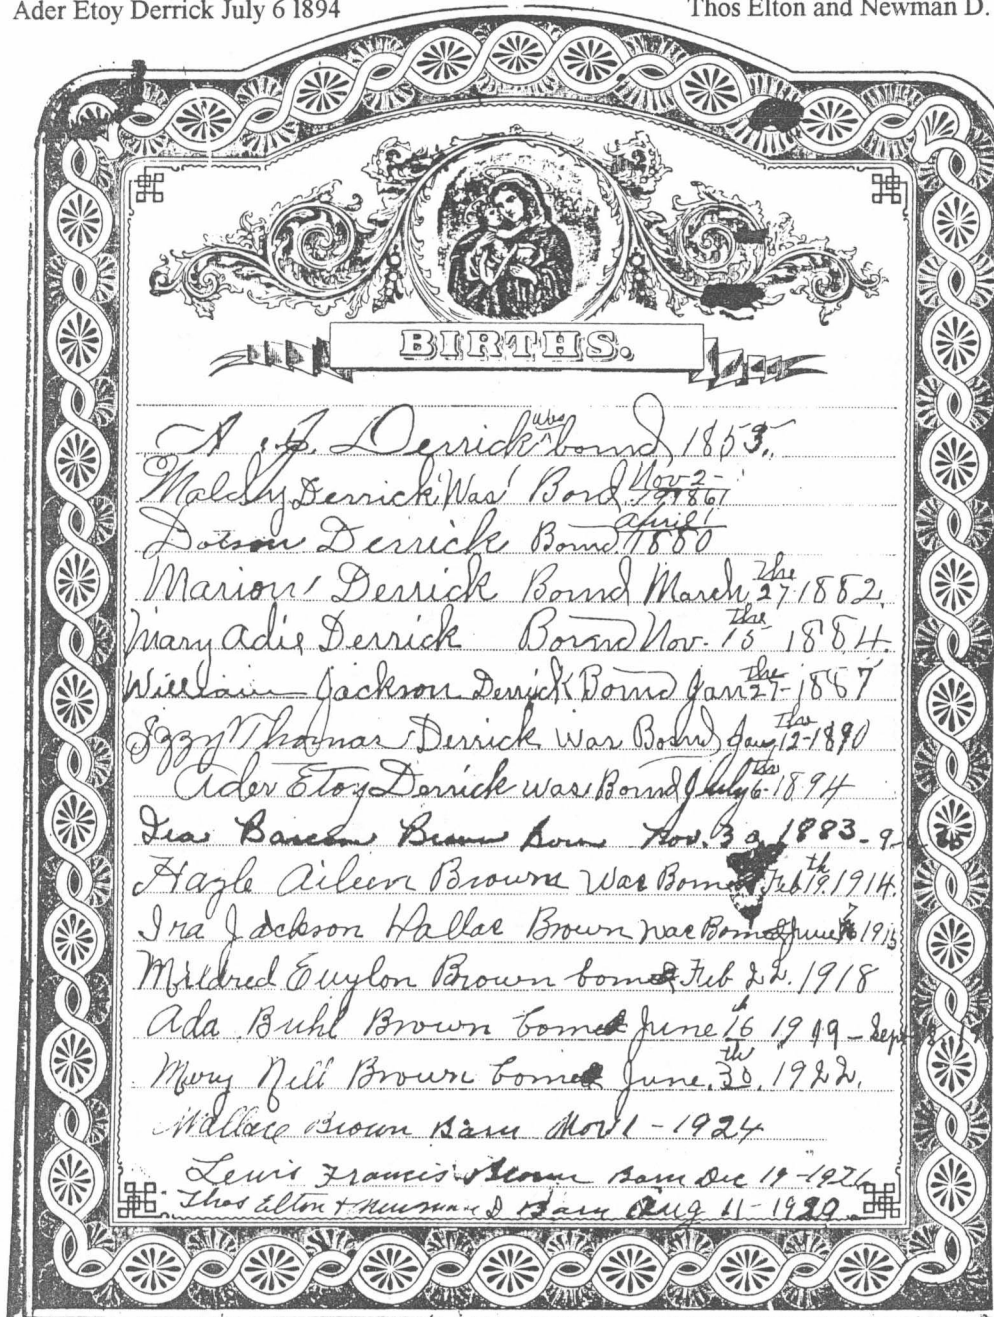 Ader Etoy Derrick July 6 1894 Thos Elton and Newman D.
BIRTHS.
A. J. Derrick was bornd 1853.
Derrick Was Bord Nov 2 - 1861
Dotson Derrick Bornd April 1 1880
Marion Derrick Bornd March the 27 1882.
Mary Adie Derrick Bornd Nov. the 15 1884.
William Jackson Derrick Bornd Jan the 27 - 1887
Izzy Thomas Derrick was Bornd Jan the 12 - 1890
Ader Etoy Derrick was Bornd July the 6 - 1894
Ira Bascom Brown Born Nov. 30 1883 - 9-
Hazle Aileen Brown was Borned Feb 19th, 1914.
Ira Jackson Wallac Brown was Borned June 1915
Mildred Euylon Brown borned Feb 22. 1918
Ada Buhl Brown borned June 16 1919 - Sep
Mary Nell Brown borned June. 30th, 1922.
Wallace Brown Barn Nov 1 - 1924
Lewis Francis Brown Barn Dec 19 - 1926
Thos Elton + Newman D Barn Aug 11 - 1929